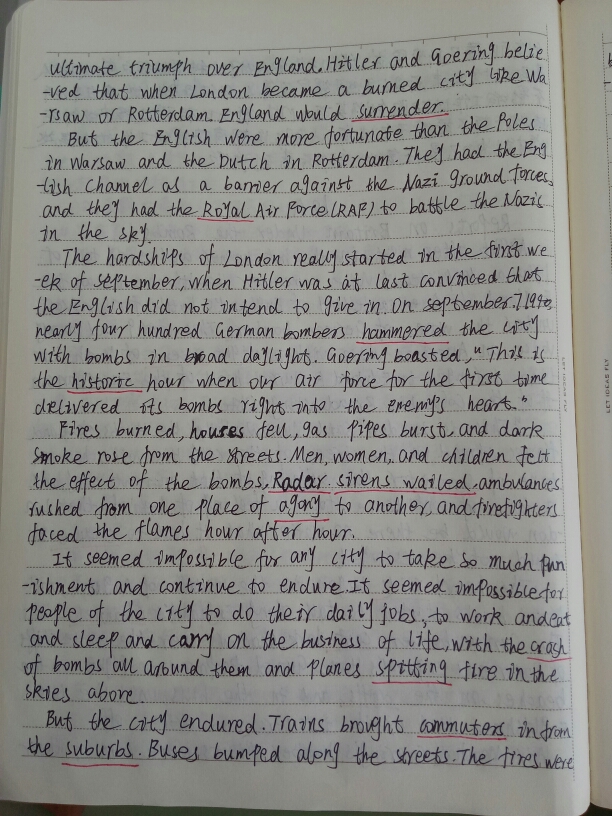 ultimate triumph over England. Hitler and Goering belie
-ved that when London became a burned city like Wa
-rsaw or Rotterdam. England would surrender.
But the English were more fortunate than the Poles
in Warsaw and the Dutch in Rotterdam. They had the Eng
-lish Channel as a barrier against the Nazi ground forces,
and they had the Royal Air Force (RAF) to battle the Nazis
in the sky.
The hardships of London really started in the first we
-ek of september, when Hitler was at last convinced that
the English did not intend to give in. On september.7,1940,
nearly four hundred German bombers hammered the city
with bombs in broad daylight. Goering boasted, "This is
the historic hour when our air force for the first time
delivered its bombs right into the enemy's heart."
Fires burned, houses fell, gas pipes burst, and dark
smoke rose from the streets. Men, women, and children felt
the effect of the bombs. Radar sirens wailed. ambulances
rushed from one place of agony to another, and firefighters
faced the flames hour after hour.
It seemed impossible for any city to take so much pun
-ishment and continue to endure. It seemed impossible for
people of the city to do their daily jobs, to work and eat
and sleep and carry on the business of life, with the crash
of bombs all around them and planes spitting fire in the
skies above.
But the city endured. Trains brought commuters in from
the suburbs. Buses bumped along the streets. The fires were
LET IDEAS FLY